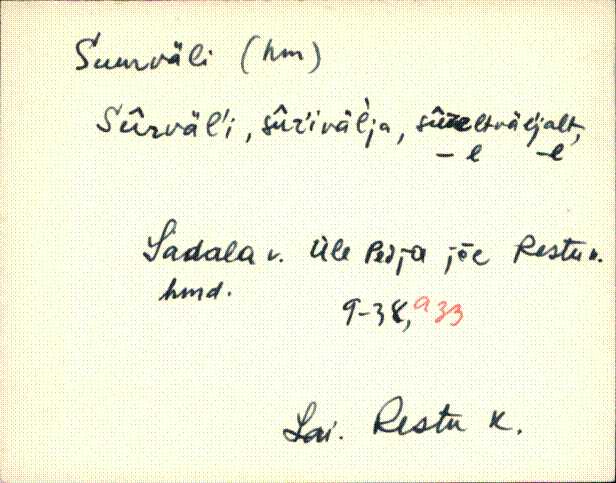 Suurväli (hm)
Sûrväl'i, sûr'iväl'ja, sûreltväljalt,
– l –l
Sadala v. üle Pedja jõe Restu k.
hmd.
9-38, a 33
Lai. Restu k.